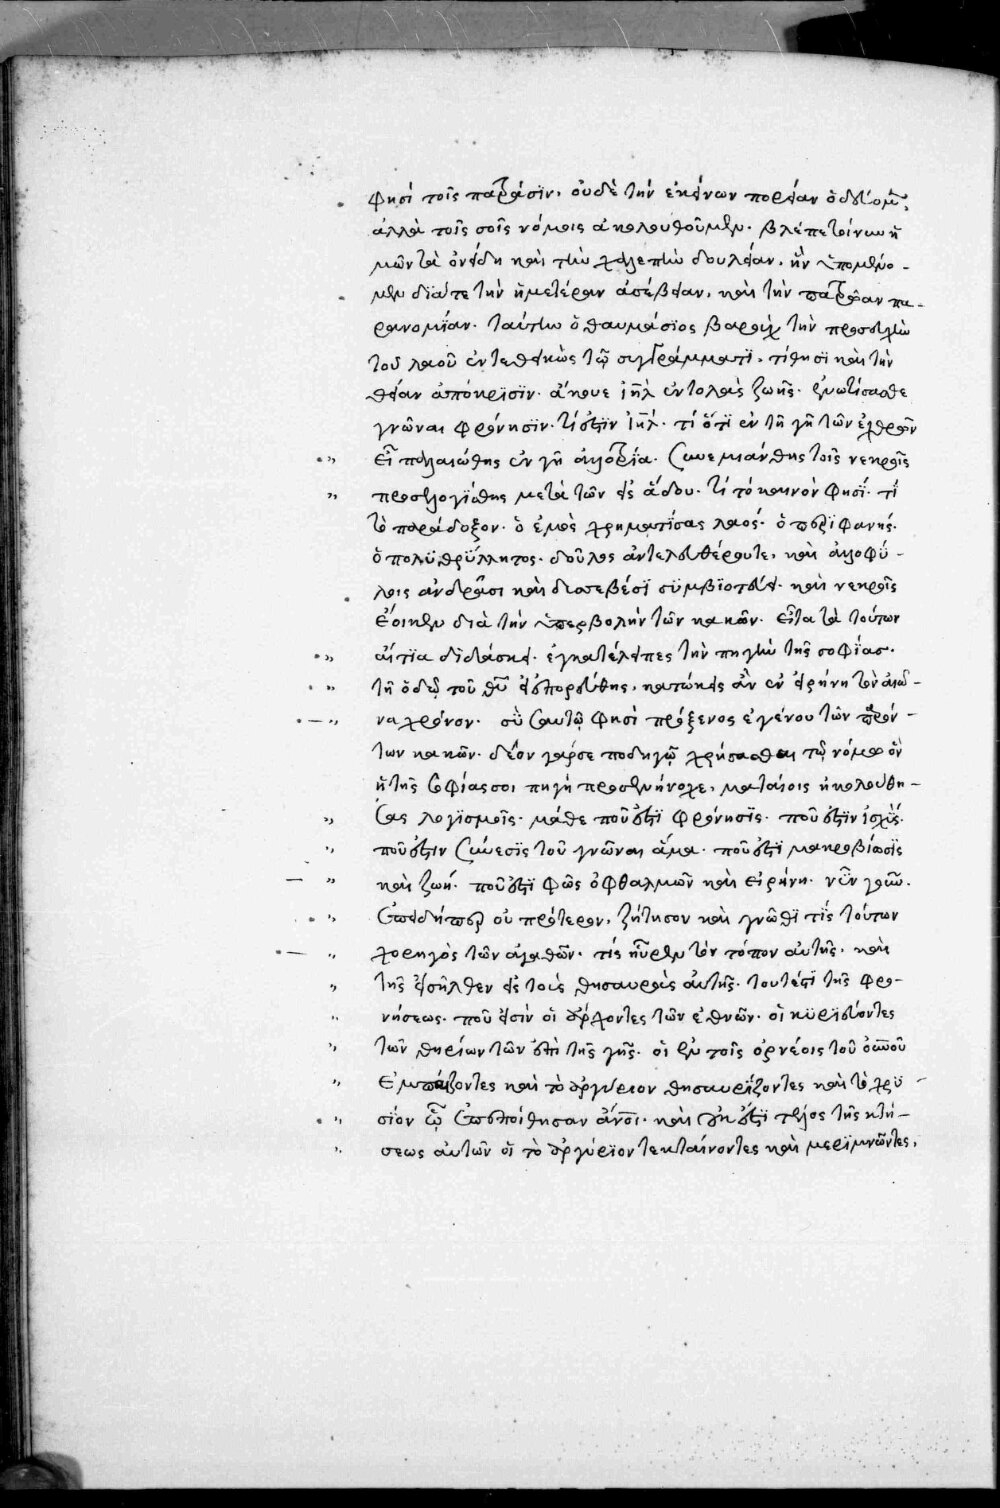 φησὶ τοῖς πατράσιν. οὐδὲ τὴν ἐκείνων πορείαν ὁδεύομεν,
ἀλλὰ τοῖς σοῖς νόμοις ἀκολουθοῦμεν. βλέπε τοίνυν ἡ
μῶν τὰ ὀνείδη καὶ τὴν χαλεπὴν δουλείαν, ἣν ὑπομένο-
μεν διά τε τὴν ἡμετέραν ἀσέβειαν, καὶ τὴν πατρῴαν πα-
ρανομίαν. ταύτην ὁ θαυμάσιος βαροὺχ τὴν προσευχὴν
τοῦ λαοῦ ἐντεθεικὼς τῷ συγγράμματι, τίθησι καὶ τὴν
θείαν ἀπόκρισιν. ἄκουε ἰηλ ἐντολὰς ζωῆς. ἐνωτίσασθε
γνῶναι φρόνησιν. τί ἐστιν ἰηλ. τί ὅτι ἐν τῇ γῇ τῶν ἐχθρῶν
εἶ παλαιώθης ἐν γῇ ἀλλοτρίᾳ. συνεμιάνθης τοῖς νεκροῖς
προσελογίσθης μετὰ τῶν εἰς ἅδου. τί τὸ καινὸν φησί. τί
τὸ παράδοξον. ὁ ἐμὸς χρηματίσας λαός. ὁ περιφανής.
ὁ πολυθρύλλητος. δοῦλος ἀντ ἐλευθέρου τε, καὶ ἀλλοφύ-
λοις ἀνδράσι καὶ δυσσεβέσι συμβιοτεύει. καὶ νεκροῖς
ἔοικεν διὰ τὴν ὑπερβολὴν τῶν κακῶν. εἶτα τὰ τούτων
αἴτια διδάσκει. ἐγκατέλειπες τὴν πηγὴν τῆς σοφίας.
τῇ ὁδῷ τοῦ θυ εἰ ἐπορεύθης, κατῴκεις ἂν ἐν εἰρήνῃ τὸν αἰῶ-
να χρόνον. σὺ σαυτῷ φησὶ πρόξενος ἐγένου τῶν παρόν-
των κακῶν. δέον γάρ σε ποδηγῷ χρήσασθαι τῷ νόμῳ ὃν
ἡ τῆς σοφίας σοι πηγὴ προσενήνοχε, ματαίοις ἠκολούθη-
σας λογισμοῖς. μάθε ποῦ ἐστι φρόνησις. ποῦ ἐστιν ἰσχύς.
ποῦ ἐστιν σύνεσις τοῦ γνῶναι ἅμα. ποῦ ἐστι μακροβίωσις
καὶ ζωή. ποῦ ἐστι φῶς ὀφθαλμῶν καὶ εἰρήνη. νῦν γοῦν
ἐπειδήπερ οὐ πρότερον, ζήτησον καὶ γνῶθι τίς τούτων
χορηγὸς τῶν ἀγαθῶν. τίς ηὗρεν τὸν τόπον αὐτῆς. καὶ
τῆς εἰσῆλθεν εἰς τοὺς θησαυροὺς αὐτῆς. τουτέστι τῆς φρο-
νήσεως. ποῦ εἰσὶν οἱ ἄρχοντες τῶν ἐθνῶν. οἱ κυριεύοντες
τῶν θηρίων τῶν ἐπὶ τῆς γῆς. οἱ ἐν τοῖς ὀρνέοις τοῦ οὐνοῦ
ἐμπαίζοντες καὶ τὸ ἀργύριον θησαυρίζοντες καὶ τὸ χρυ-
σίον ᾧ ἐπεποίθησαν ἄνοι. καὶ οὐκ ἔστι τέλος τῆς κτή-
σεως αὐτῶν οἳ τὸ ἀργύριον τεκταίνοντες καὶ μεριμνῶντες,